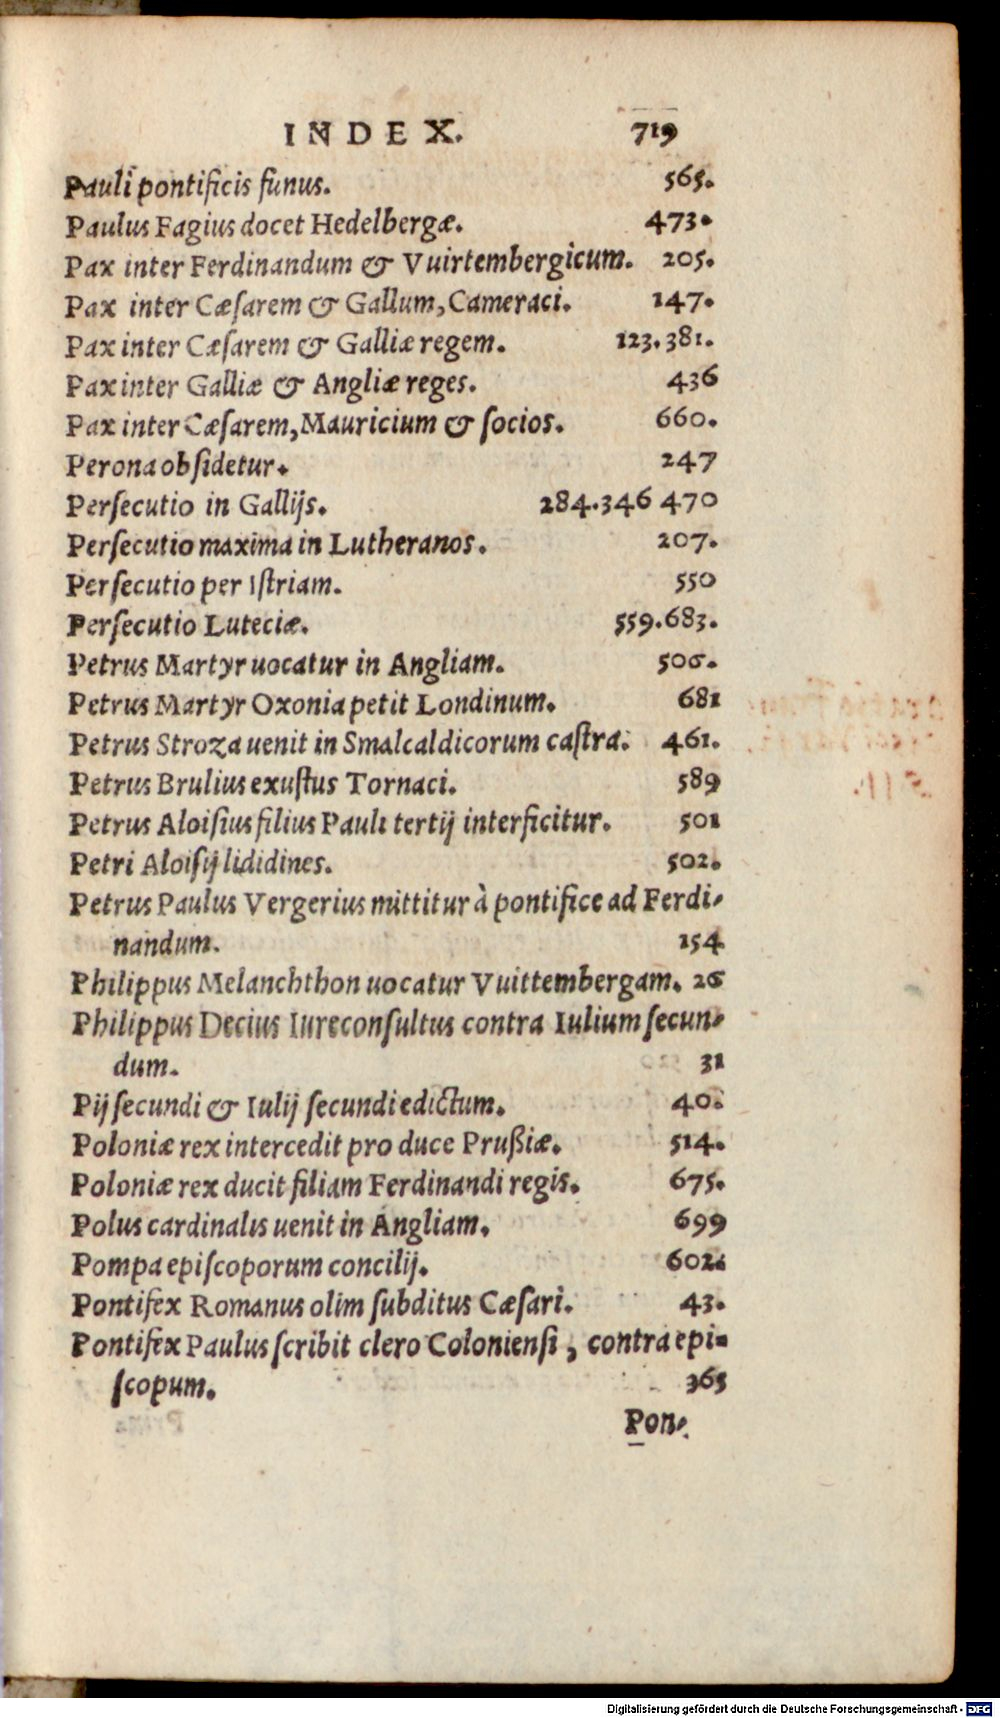 INDEX. 719
Pauli pontificis funus. 565.
Paulus Fagius docet Hedelbergæ. 473.
Pax inter Ferdinandum & Vuirtembergicum. 205.
Pax inter Cæſarem & Gallum, Cameraci. 147.
Pax inter Cæſarem & Galliæ regem. 123.381.
Pax inter Galliæ & Angliæ reges. 436
Pax inter Cæſarem, Mauricium & ſocios. 660.
Perona obſidetur. 247
Perſecutio in Gallijs. 284.346 470
Perſecutio maxima in Lutheranos. 207.
Perſecutio per Iſtriam. 550
Perſecutio Luteciæ. 559.683.
Petrus Martyr uocatur in Angliam. 506.
Petrus Martyr Oxonia petit Londinum. 681
Petrus Stroza uenit in Smalcaldicorum caſtra. 461.
Petrus Brulius exuſtus Tornaci. 589
Petrus Aloiſius filius Pauli tertij interficitur. 501
Petri Aloiſij lididines. 502.
Petrus Paulus Vergerius mittitur à pontifice ad Ferdi-
nandum. 154
Philippus Melanchthon uocatur Vuittembergam. 26
Philippus Decius Iureconſultus contra Iulium ſecun-
dum. 31
Pij ſecundi & Iulij ſecundi edictum. 40.
Poloniæ rex intercedit pro duce Prußiæ. 514.
Poloniæ rex ducit filiam Ferdinandi regis. 675.
Polus cardinalis uenit in Angliam. 699
Pompa epiſcoporum concilij. 602.
Pontifex Romanus olim ſubditus Cæſari. 43.
Pontifex Paulus ſcribit clero Colonienſi, contra epi-
ſcopum. 365
Pon-
Digitalisierung gefördert durch die Deutsche Forschungsgemeinschaft - DFG